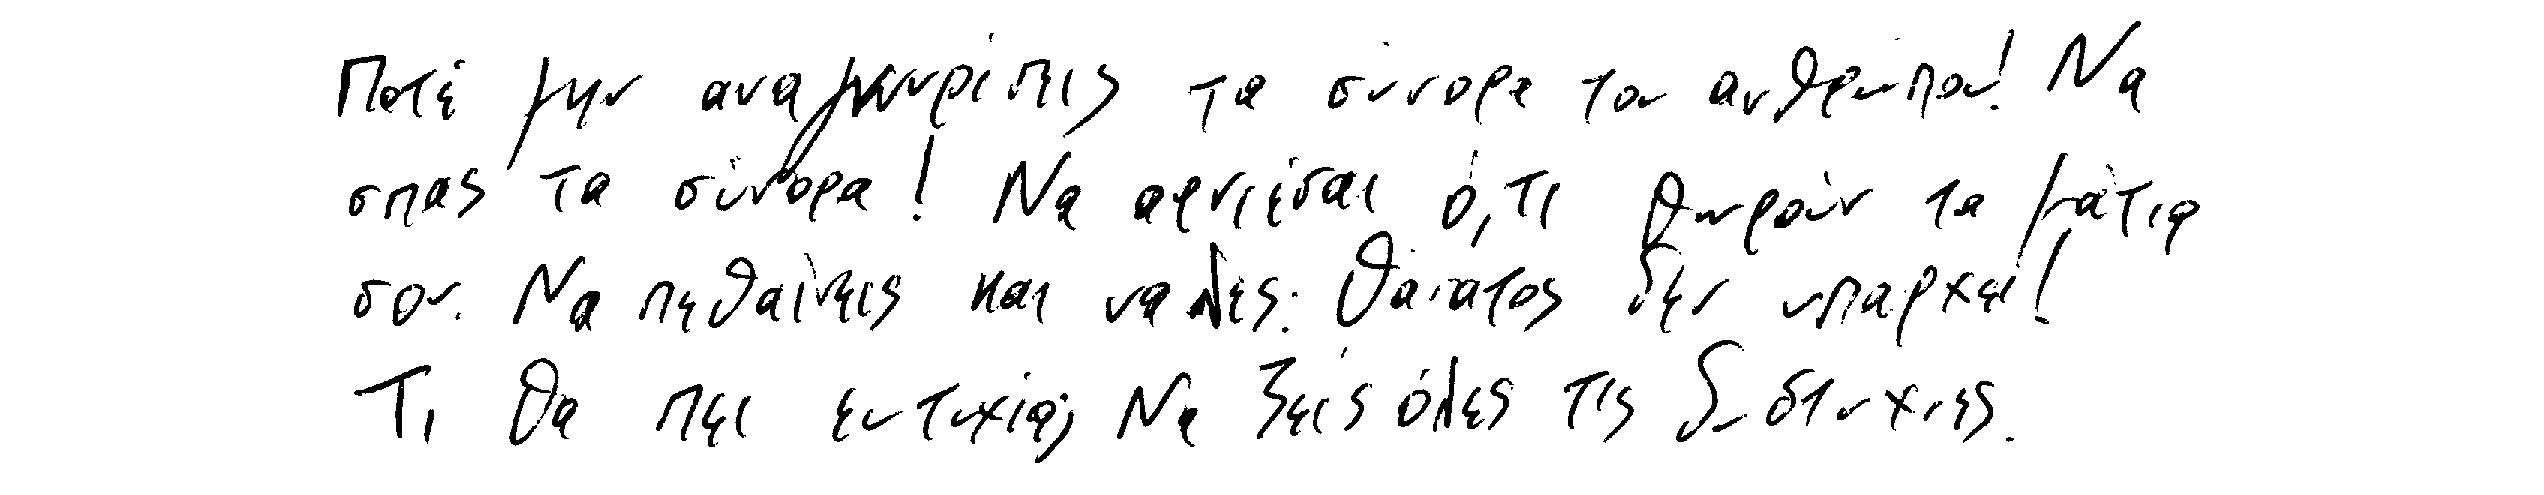 Ποτέ μην αναγνωρίσεις τα σύνορα του ανθρώπου! Να
σπας τα σύνορα! Να αρνιέσαι ό,τι θωρούν τα μάτια
σου. Να πεθαίνεις και να λες: Θάνατος δεν υπάρχει!
Τι θα πει ευτυχία; Να ζεις όλες τις δυστυχίες.